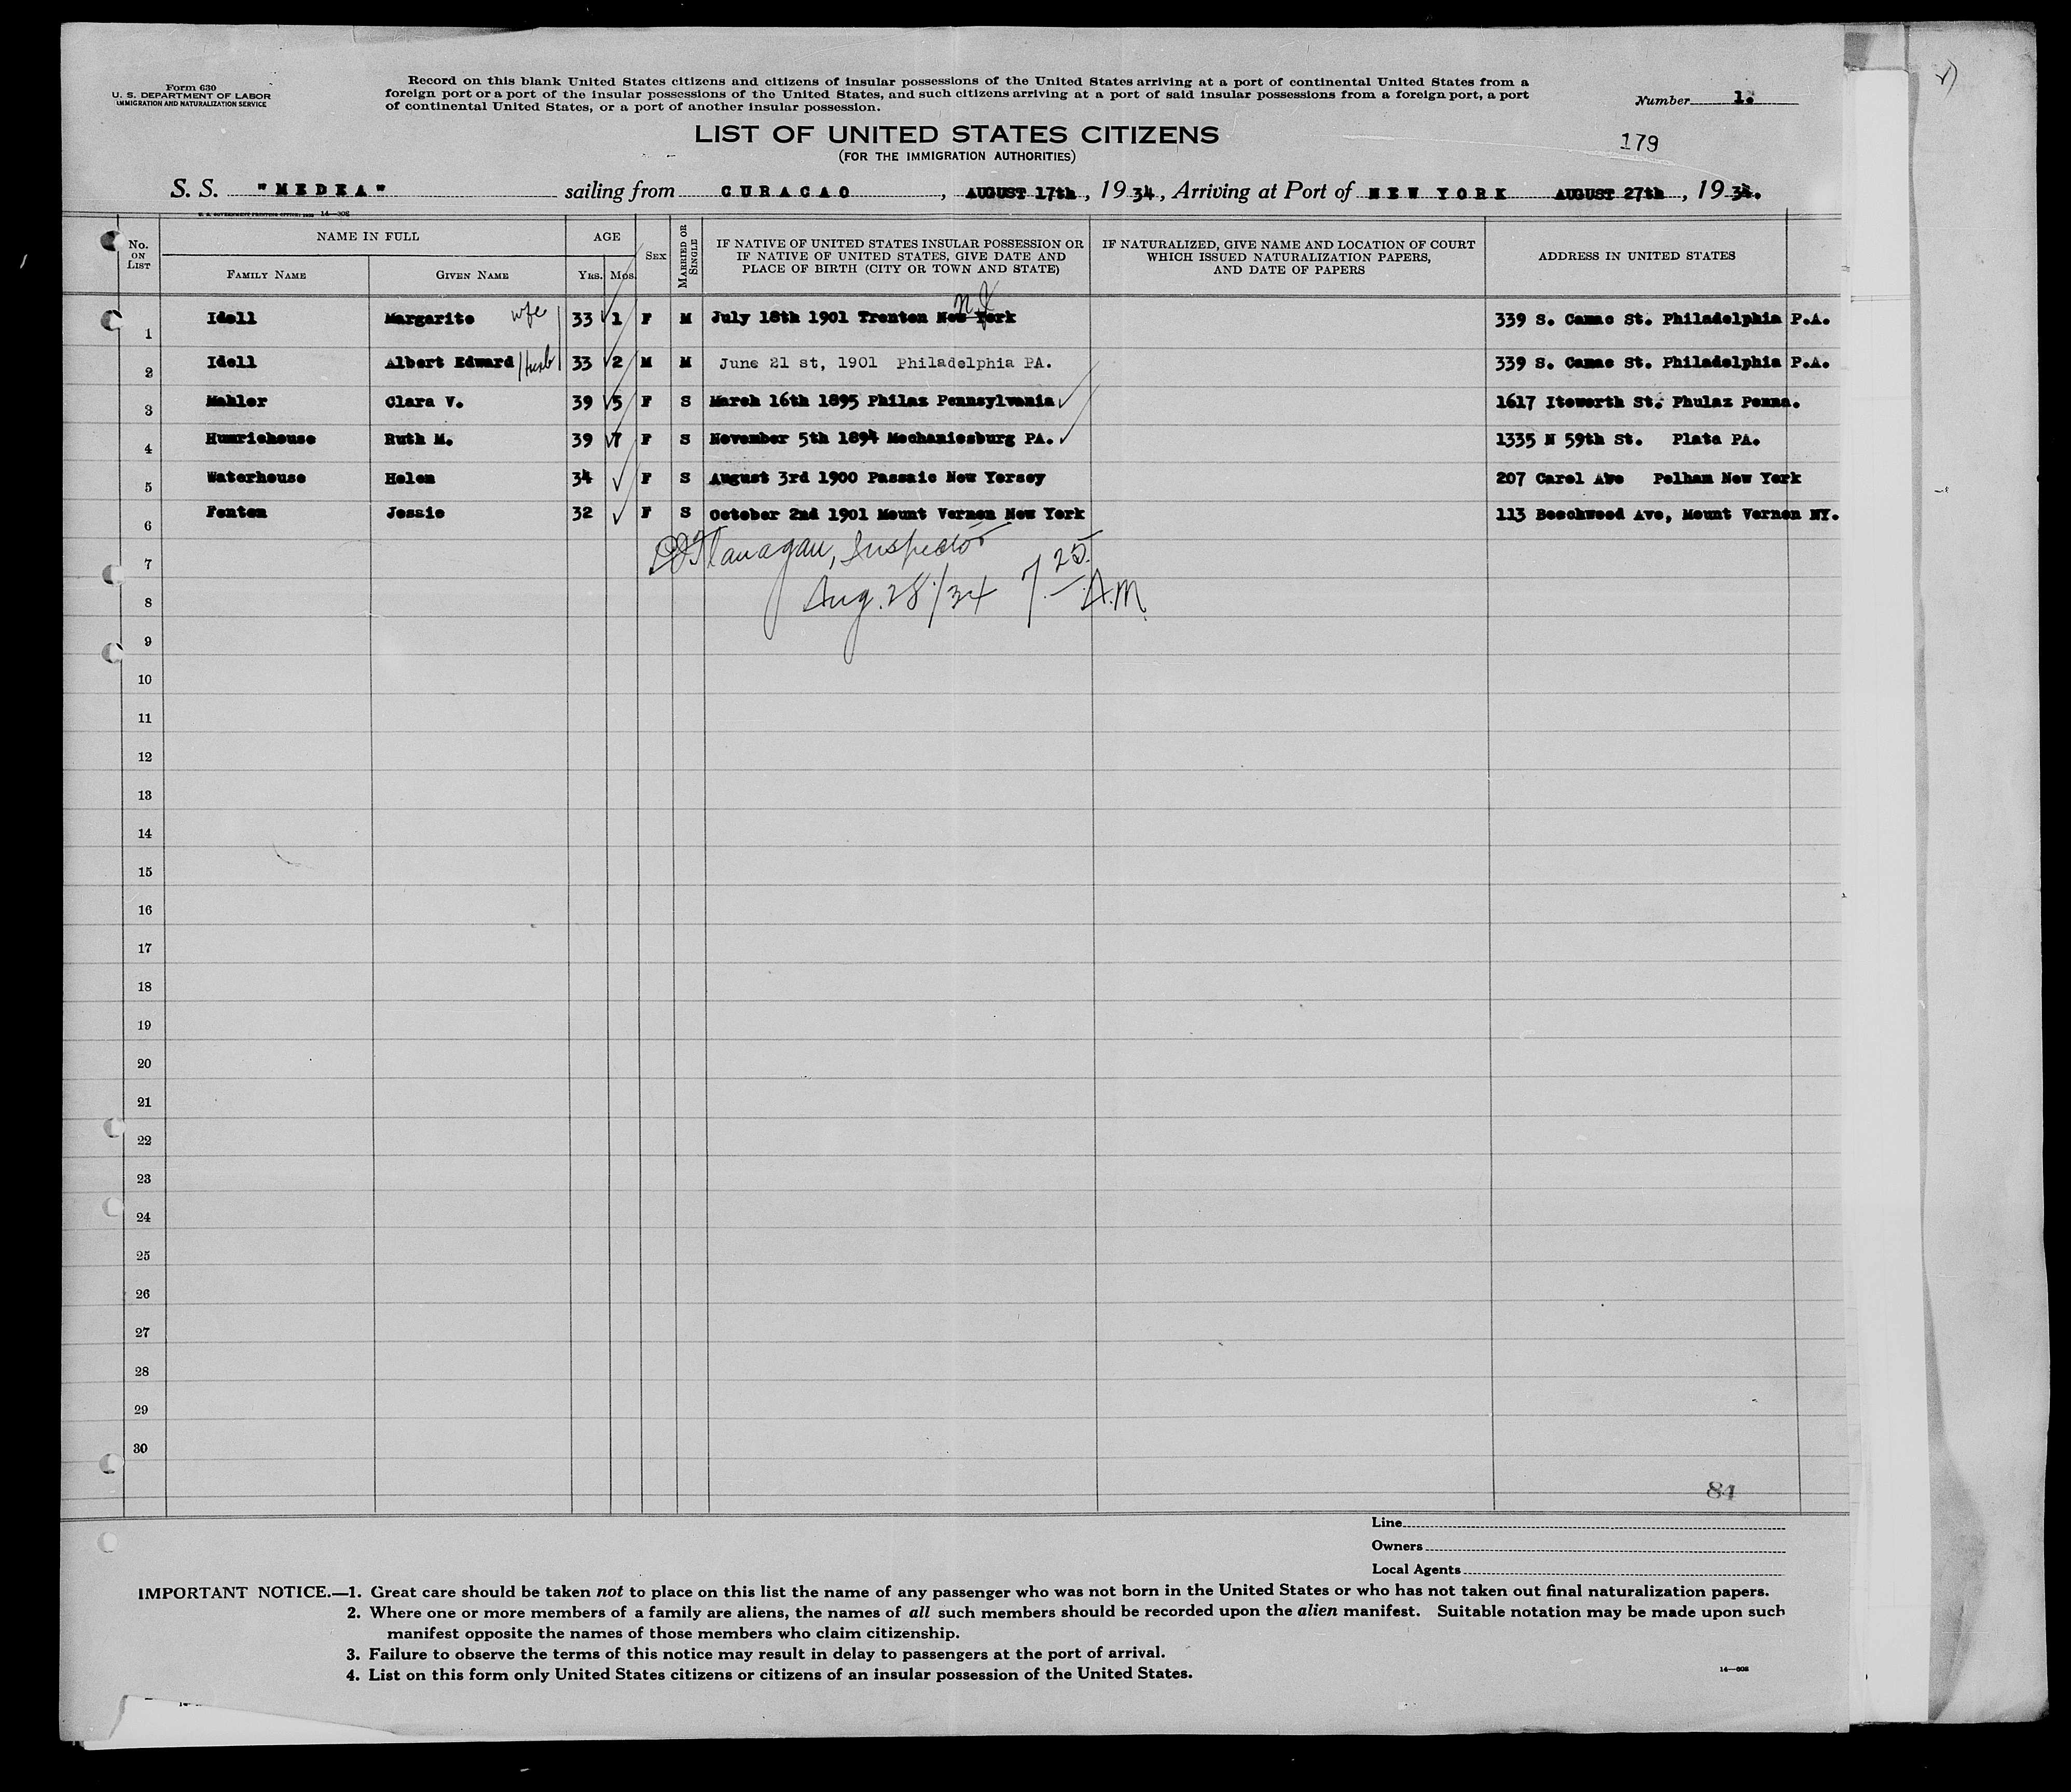 Form 630
U. S. DEPARTMENT OF LABOR
IMMIGRATION AND NATURALIZATION SERVICE
Record on this blank United States citizens and citizens of insular possessions of the United States arriving at a port of continental United States from a
foreign port or a port of the insular possessions of the United States, and such citizens arriving at a port of said insular possessions from a foreign port, a port
of continental United States, or a port of another insular possession.
Number 1.
LIST OF UNITED STATES CITIZENS
179
(FOR THE IMMIGRATION AUTHORITIES)
S. S. "MEDEA" sailing from CURACAO, AUGUST 17th, 1934, Arriving at Port of NEW YORK AUGUST 27th, 1934.
No. ON LIST
NAME IN FULL
FAMILY NAME
GIVEN NAME
AGE
YRS. MOS.
SEX
MARRIED OR SINGLE
IF NATIVE OF UNITED STATES INSULAR POSSESSION OR
IF NATIVE OF UNITED STATES, GIVE DATE AND
PLACE OF BIRTH (CITY OR TOWN AND STATE)
IF NATURALIZED, GIVE NAME AND LOCATION OF COURT
WHICH ISSUED NATURALIZATION PAPERS,
AND DATE OF PAPERS
ADDRESS IN UNITED STATES
1 Idell Margarite wife 33 1 F M July 18th 1901 Trenton New York N J 339 S. Camac St. Philadelphia P.A.
2 Idell Albert Edward husb 33 2 M M June 21 st, 1901 Philadelphia PA. 339 S. Camac St. Philadelphia P.A.
3 Mahler Clara V. 39 5 F S March 16th 1895 Philaz Pennsylvania 1617 Iteworth St. Phulaz Penna.
4 Humrichouse Ruth M. 39 7 F S November 5th 1894 Mechaniesburg PA. 1335 N 59th St. Plata PA.
5 Waterhouse Helen 34 F S August 3rd 1900 Passaic New Yersey 207 Carol Ave Pelham New York
6 Fenton Jessie 32 F S October 2nd 1901 Mount Vernon New York 113 Beechwood Ave, Mount Vernon NY.
Flanagan, Inspector
7
Aug. 28/34 7.25 A.M.
8
9
10
11
12
13
14
15
16
17
18
19
20
21
22
23
24
25
26
27
28
29
30
84
Line
Owners
Local Agents
IMPORTANT NOTICE.—1. Great care should be taken not to place on this list the name of any passenger who was not born in the United States or who has not taken out final naturalization papers.
2. Where one or more members of a family are aliens, the names of all such members should be recorded upon the alien manifest. Suitable notation may be made upon such
manifest opposite the names of those members who claim citizenship.
3. Failure to observe the terms of this notice may result in delay to passengers at the port of arrival.
4. List on this form only United States citizens or citizens of an insular possession of the United States.